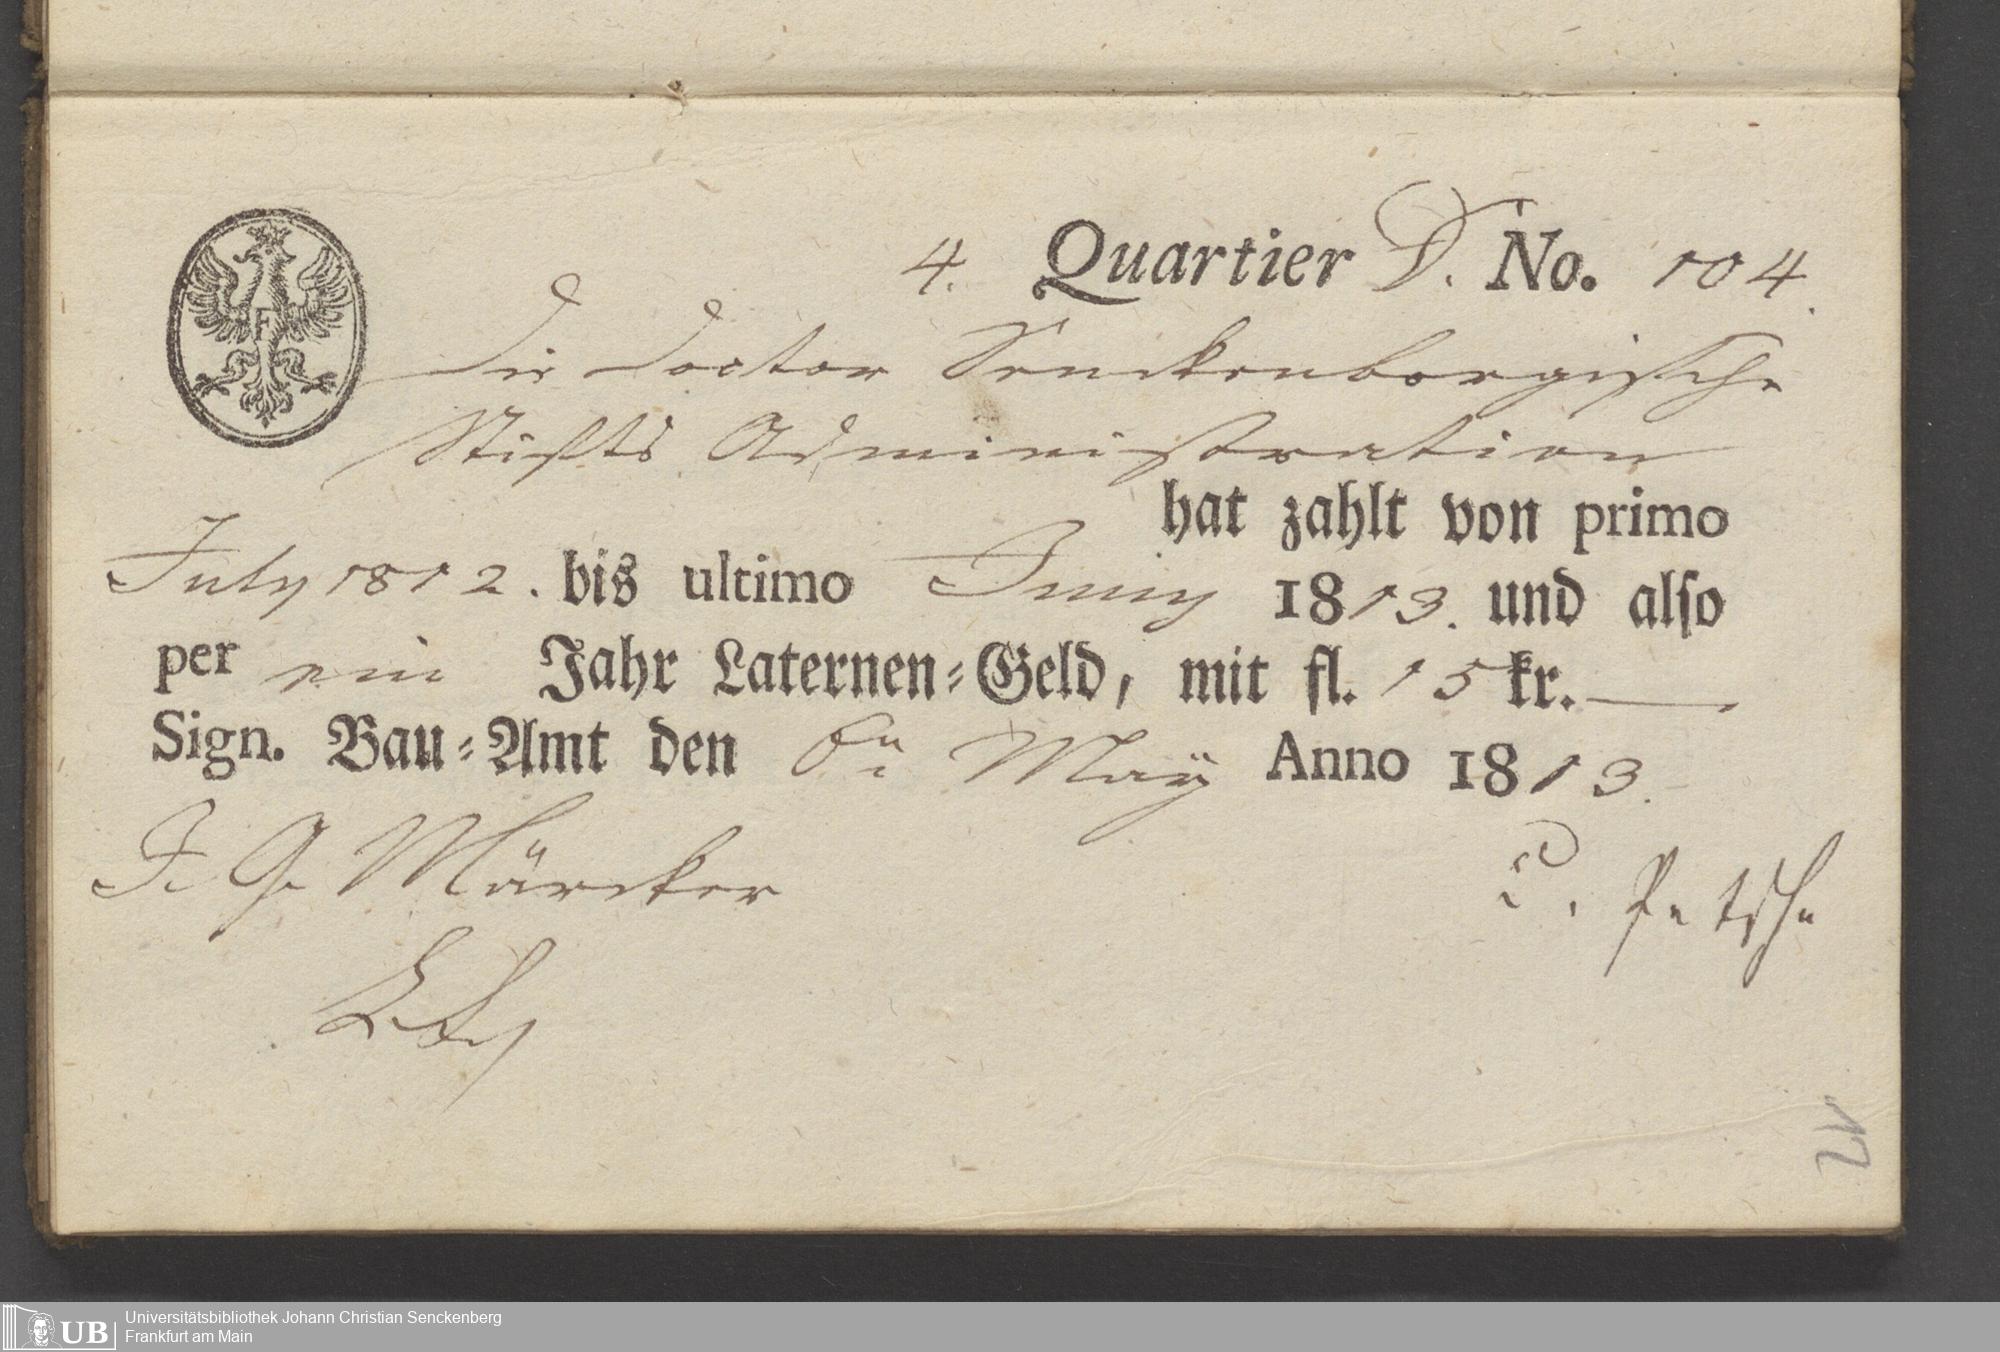 4. Quartier D. No. 104.
F
die doctor Senckenbergische
Stifts Administration
hat zahlt von primo
July 1812. bis ultimo Juny 1813. und also
per ein Jahr Laternen-Geld, mit fl. 15 kr. —
Sign. Bau-Amt den 6n May Anno 1813.
J. G. Märcker
P. Petsch
UB
Universitätsbibliothek Johann Christian Senckenberg
Frankfurt am Main